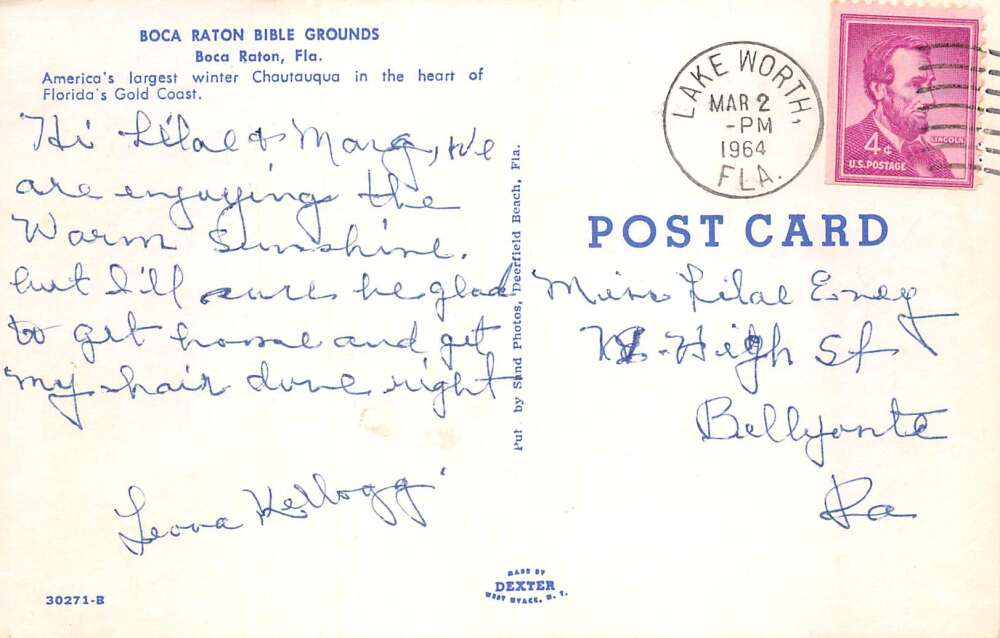 BOCA RATON BIBLE GROUNDS
Boca Raton, Fla.
America's largest winter Chautauqua in the heart of
Florida's Gold Coast.
Hi Lilae & Marg, We
are enjoying the
Warm Sunshine.
but I'll sure be glad
to get home and get
my hair done right
Leona Kellogg
30271-B
Put by Sand Photos, Deerfield Beach, Fla.
MADE BY
DEXTER
WEST NYACK, N. Y.
LAKE WORTH,
MAR 2
-PM
1964
FLA.
LINCOLN
4¢
U.S. POSTAGE
POST CARD
Miss Lilae
High St
Bellfonte
Pa